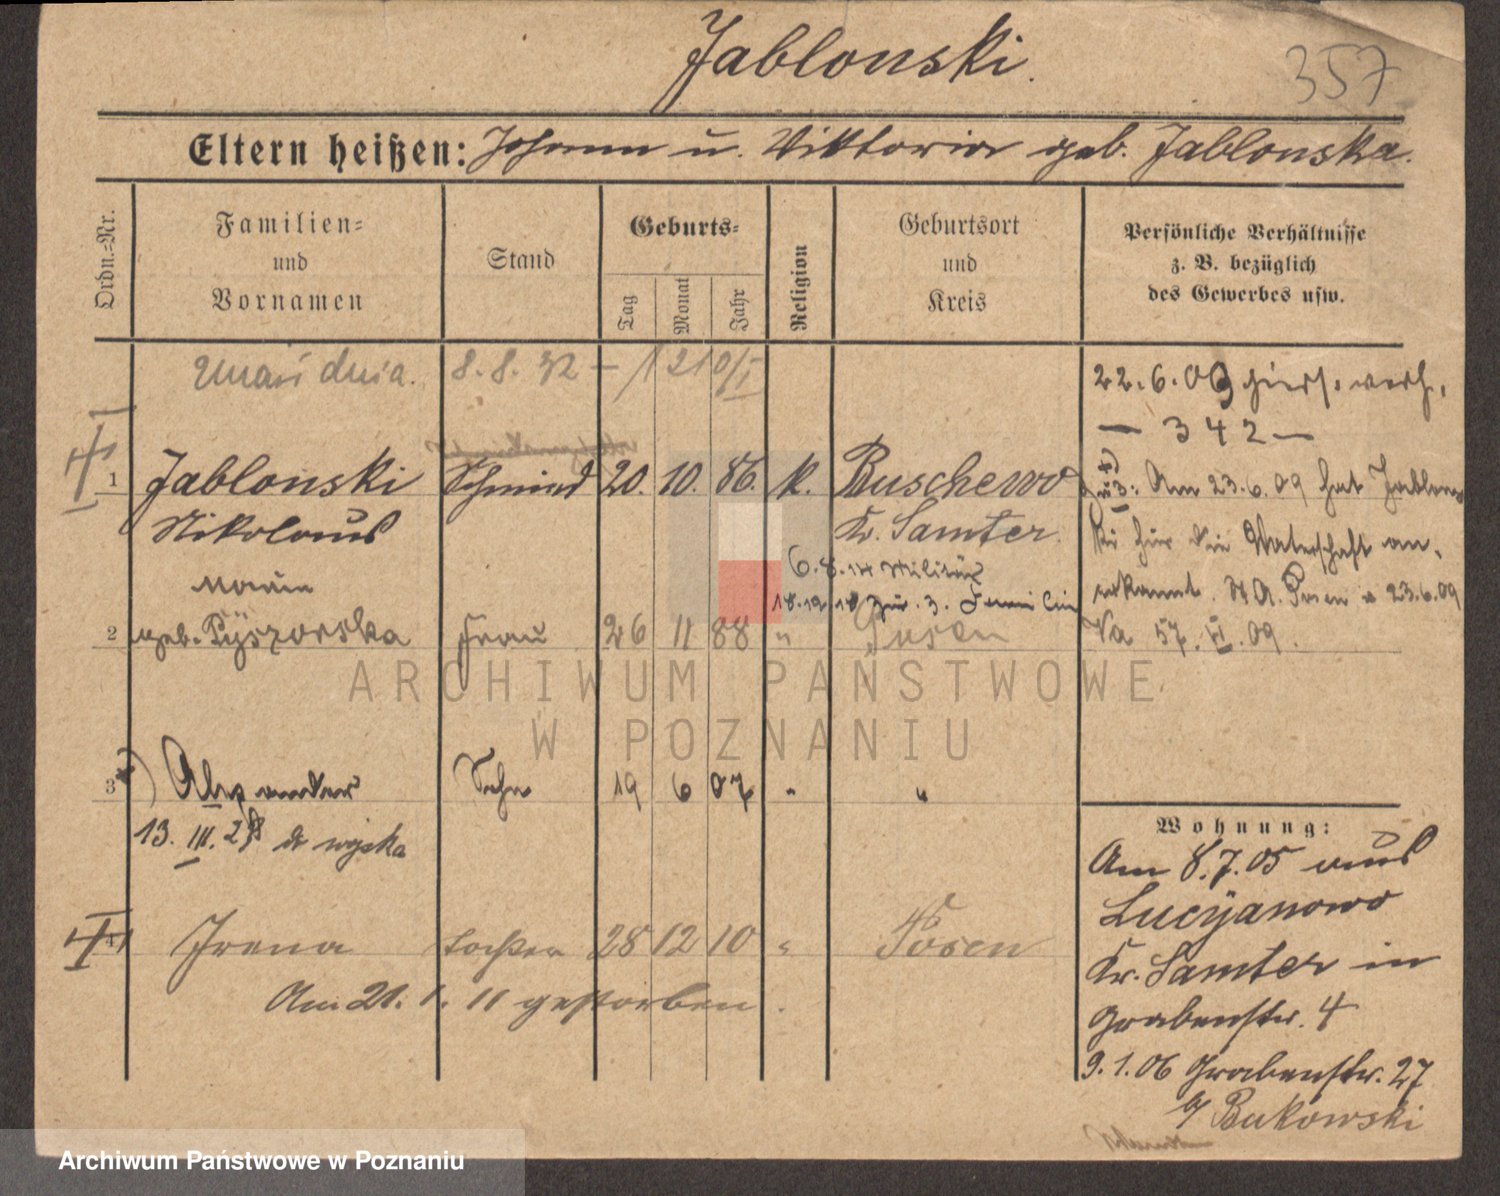 Jablonski.
357
Eltern heißen: Johann u. Viktoria geb. Jablonska.
Ordn.-Nr.
Familien- und Vornamen
Stand
Geburts-
Tag
Monat
Jahr
Religion
Geburtsort und Kreis
Persönliche Verhältnisse
z. B. bezüglich
des Gewerbes usw.
Zmarł dnia. 8. 8. 32
22. 6. 09 hiers. verh.
— 342 —
1 Jablonski Schmied 20. 10. 86. k. Buschewo
Nikolaus Kr. Samter.
6. 8. 14 Militär
18. 12. 18 zur.
Maria
2 geb. Pyszorska Frau 26 11 88 " Posen
zu 3: Am 23. 6. 09 hat Jablons
ki für die Vaterschaft an-
erkannt. St A. Posen v 23. 6. 09
Va 57. VI. 09.
3 Alexander Sohn 19 6 07 " "
13. III. 28 do wojska
4 Irena Tochter 28 12 10 " Posen
Am 21. 1. 11 gestorben.
Wohnung:
Am 8. 7. 05 aus
Lucyanowo
Kr. Samter in
Grabenstr. 4
9. 1. 06 Grabenstr. 27
b/ Bukowski
ARCHIWUM PAŃSTWOWE
W POZNANIU
Archiwum Państwowe w Poznaniu